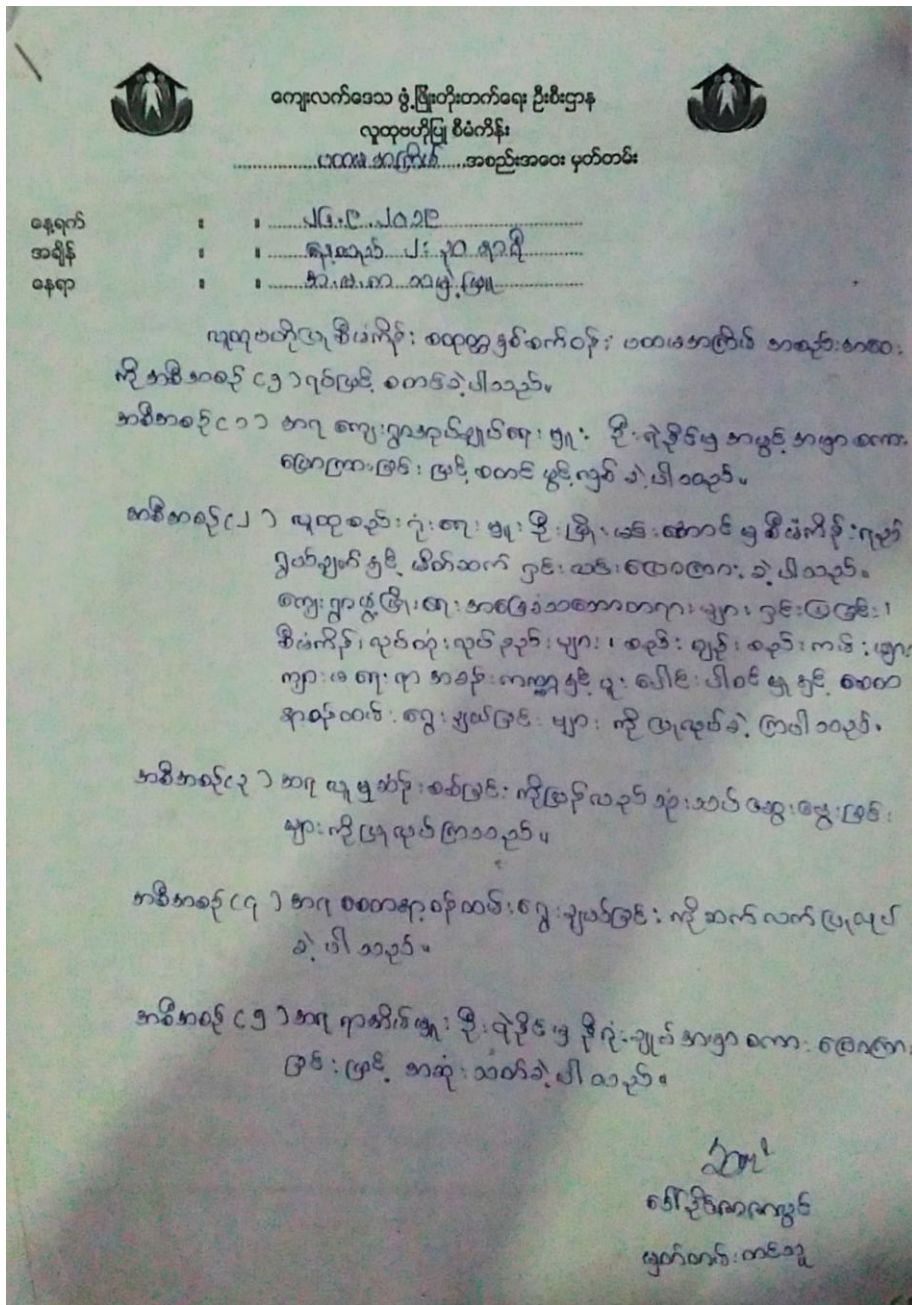 ကျေးလက်ဒေသ ဖွံ့ဖြိုးတိုးတက်ရေး ဦးစီးဌာန
လူထုဗဟိုပြု စီမံကိန်း
ပထမအကြိမ် အစည်းအဝေး မှတ်တမ်း
နေ့ရက် : : ၂၄.၉.၂၀၁၉
အချိန် : : နေ့လည် ၂း၃၀ နာရီ
နေရာ : : အ.မ.က သမဲ့ဖြူ
လူထုဗဟိုပြုစီမံကိန်း စတုတ္ထနှစ်စက်ဝန်း ပထမအကြိမ် အစည်းအဝေး
ကို အစီအစဉ် (၅) ရပ်ဖြင့် စတင်ခဲ့ပါသည်။
အစီအစဉ်(၁) အရ ကျေးရွာအုပ်ချုပ်ရေးမှူး ဦးရဲနိုင်မှ အဖွင့်အမှာစကား
ပြောကြားခြင်းဖြင့် စတင်ဖွင့်လှစ်ခဲ့ပါသည်။
အစီအစဉ်(၂) လူထုစည်းရုံးရေးမှူး ဦးဖြိုးမင်းအောင်မှ စီမံကိန်းရည်
ရွယ်ချက်နှင့် မိတ်ဆက် ရှင်းလင်းပြောကြားခဲ့ပါသည်။
ကျေးရွာဖွံ့ဖြိုးရေး အခြေခံသဘောတရားများ ရှင်းပြခြင်း၊
စီမံကိန်းလုပ်ထုံးလုပ်နည်းများ၊ စည်းမျဉ်းစည်းကမ်းများ
ကျားမရေးရာ အခန်းကဏ္ဍနှင့် ပူးပေါင်းပါဝင်မှုနှင့် စေတ
နာ့ဝန်ထမ်း ရွေးချယ်ခြင်းများ ကို ပြုလုပ်ခဲ့ကြပါသည်။
အစီအစဉ်(၃) အရ လူမှုဆန်းစစ်ခြင်းကို ပြန်လည်သုံးသပ်ဆွေးနွေးခြင်း
များကို ပြုလုပ်ကြသည်။
အစီအစဉ်(၄) အရ စေတနာ့ဝန်ထမ်းရွေးချယ်ခြင်းကို ဆက်လက်ပြုလုပ်
ခဲ့ပါသည်။
အစီအစဉ်(၅) အရ ရာအိမ်မှူး ဦးရဲနိုင်မှ နိဂုံးချုပ်အမှာစကား ပြောကြား
ခြင်းဖြင့် အဆုံးသတ်ခဲ့ပါသည်။
မှတ်တမ်းတင်သူ